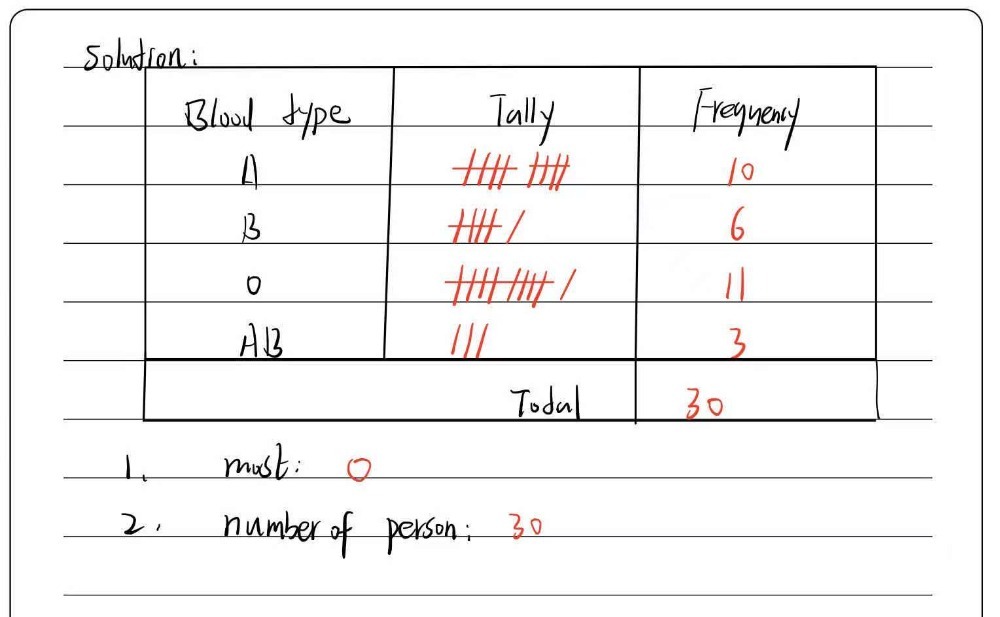 Solution:
Blood type Tally Frequency
A 卌 卌 10
B 卌 / 6
O 卌 卌 / 11
AB /// 3
Total 30
1. most: O
2. number of person: 30